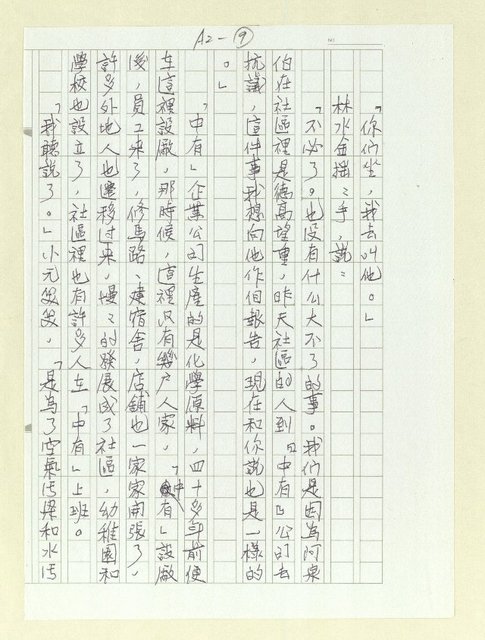 A2-⑨
「你们坐，我去叫他。」
林水金摇摇手，說：
「不必了。也没有什么大不了的事。我们是因為阿泉
伯在社區裡是德高望重，昨天社區的人到『中有』公司去
抗議，這件事我想向他作個報告，現在和你說也是一樣的
。」
「中有」企業公司生產的是化學原料，四十多年前便
在這裡設廠，那時候，這裡只有幾户人家，「中有」設廠
後，員工來了，修馬路、建宿舍，店舖也一家家開張了，
許多外地人也遷移过來，慢慢的發展成了社區，幼稚園和
學校也設立了，社區裡也有許多人在「中有」上班。
「我聽說了。」小元發發，「是為了空氣污染和水污